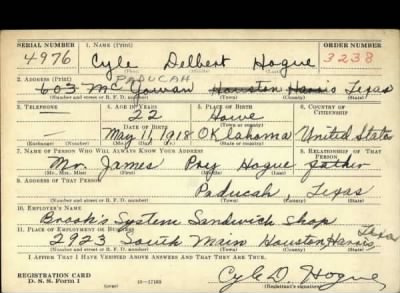 SERIAL NUMBER 1. NAME (Print) ORDER NUMBER
4976 Cyle Delbert Hogue 3238
(First) (Middle) (Last)
2. ADDRESS (Print) PADUCAH
603 McGowan Houston Harris Texas
(Number and street or R. F. D. number) (Town) (County) (State)
3. TELEPHONE 4. AGE IN YEARS 5. PLACE OF BIRTH 6. COUNTRY OF CITIZENSHIP
— 22 Howe
DATE OF BIRTH (Town or county)
— May 11, 1918 Oklahoma United States
(Exchange) (Number) (Mo.) (Day) (Yr.) (State or country)
7. NAME OF PERSON WHO WILL ALWAYS KNOW YOUR ADDRESS 8. RELATIONSHIP OF THAT PERSON
Mr. James Hogue father
(Mr., Mrs., Miss) (First) (Middle) (Last)
9. ADDRESS OF THAT PERSON
Paducah, Texas
(Number and street or R. F. D. number) (Town) (County) (State)
10. EMPLOYER'S NAME
Brook's System Sandwich Shop
11. PLACE OF EMPLOYMENT OR BUSINESS
2923 South Main Houston Harris Texas
(Number and street or R. F. D. number) (Town) (County) (State)
I AFFIRM THAT I HAVE VERIFIED ABOVE ANSWERS AND THAT THEY ARE TRUE.
REGISTRATION CARD Cyle D. Hogue
D. S. S. Form 1 (over) (Registrant's signature)